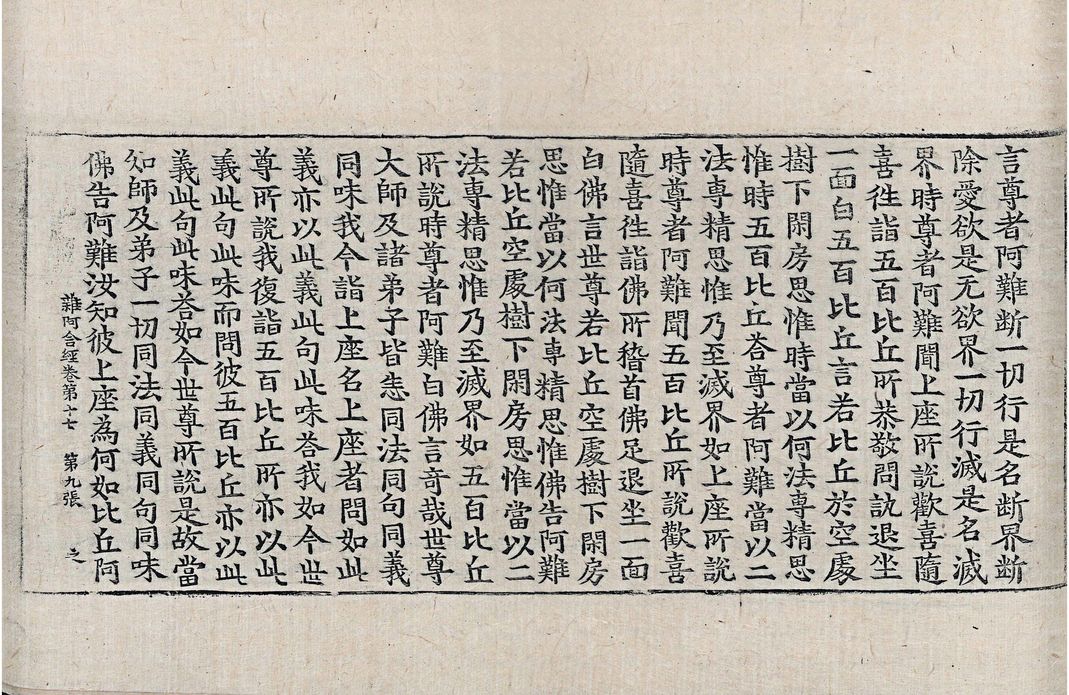 言尊者阿難断一切行是名断界断
除愛欲是无欲界一切行滅是名滅
界時尊者阿難聞上座所說歡喜隨
喜徃詣五百比丘所恭敬問訊退坐
一面白五百比丘言若比丘於空處
樹下閑房思惟時當以何法專精思
惟時五百比丘荅尊者阿難當以二
法專精思惟乃至滅界如上座所說
時尊者阿難聞五百比丘所說歡喜
隨喜徃詣佛所稽首佛足退坐一面
白佛言世尊若比丘空處樹下閑房
思惟當以何法專精思惟佛告阿難
若比丘空處樹下閑房思惟當以二
法專精思惟乃至滅界如五百比丘
所說時尊者阿難白佛言奇哉世尊
大師及諸弟子皆悉同法同句同義
同味我今詣上座名上座者問如此
義亦以此義此句此味荅我如今世
尊所說我復詣五百比丘所亦以此
義此句此味而問彼五百比丘亦以此
義此句此味荅如今世尊所說是故當
知師及弟子一切同法同義同句同味
佛告阿難汝知彼上座為何如比丘阿
雜阿含經卷第十七 第九張 之